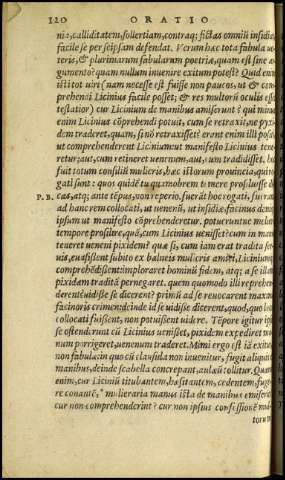 120 ORATIO
nia, calliditatem, sollertiam, contraq; fictas omniū insidias
facile se per seipsam defendat. Verum hæc tota fabula ue
teris, & plurimarum fabularum poetriæ, quam est sine ar
gumento? quam nullum inuenire exitum potest? Quid enim
isti tot uiri (nam necesse est fuisse non paucos, ut & com
prehendi Licinius facile posset, & res multorū oculis esset
testatior) cur Licinium de manibus amiserunt? qui minus
eni Licinius cōprehendi potuit, cum se retraxit, ne pyxi
dem traderet, quam, si nō retraxisset? erant enim illi positi,
ut comprehenderent Licinium: ut manifesto Licinius tene
retur; aut, cum retineret uenenum, aut, cum tradidisset. hoc
fuit totum consiliū mulieris, hæc istorum prouincia, qui ro
gati sunt: quos quidē tu quamobrem temere prosiluisse di
P. B. cas, atq; ante tēpus, non reperio. fuerāt hoc rogati, fuerāt
ad hanc rem collocati, ut uenenū, ut insidiæ, facinus deniq;
ipsum ut manifesto cōprehenderetur. potueruntne meliore
tempore prosilire, quā, cum Licinius uenisset? cum in manu
teneret ueneni pixidem? quæ si, cum iam erat tradita ser
uis, euasissent subito ex balneis mulieris amici, Liciniumq;
comprehēdissēt: imploraret hominū fidem, atq; a se illam
pixidem traditā pernegaret. quem quomodo illi reprehen
derent? uidisse se dicerent? primū ad se reuocarent maximi
facinoris crimen: deinde id se uidisse dicerent, quod, quo loco
collocati fuissent, non potuissent uidere. Tēpore igitur ipso
se ostenderunt cū Licinius uenisset, pixidem expediret, ma
num porrigeret, uenenum traderet. Mimi ergo est iā exitus,
non fabulæ: in quo cū clausula non inuenitur, fugit aliquis e
manibus, deinde scabella concrepant, aulæū tollitur. Quæro
enim, cur Liciniū titubantem, hæsitantem, cedentem, fuge
re conantē, * mulieraria manus ista de manibus emiserit:
cur non comprehenderint? cur non ipsius confessione mul-
torum